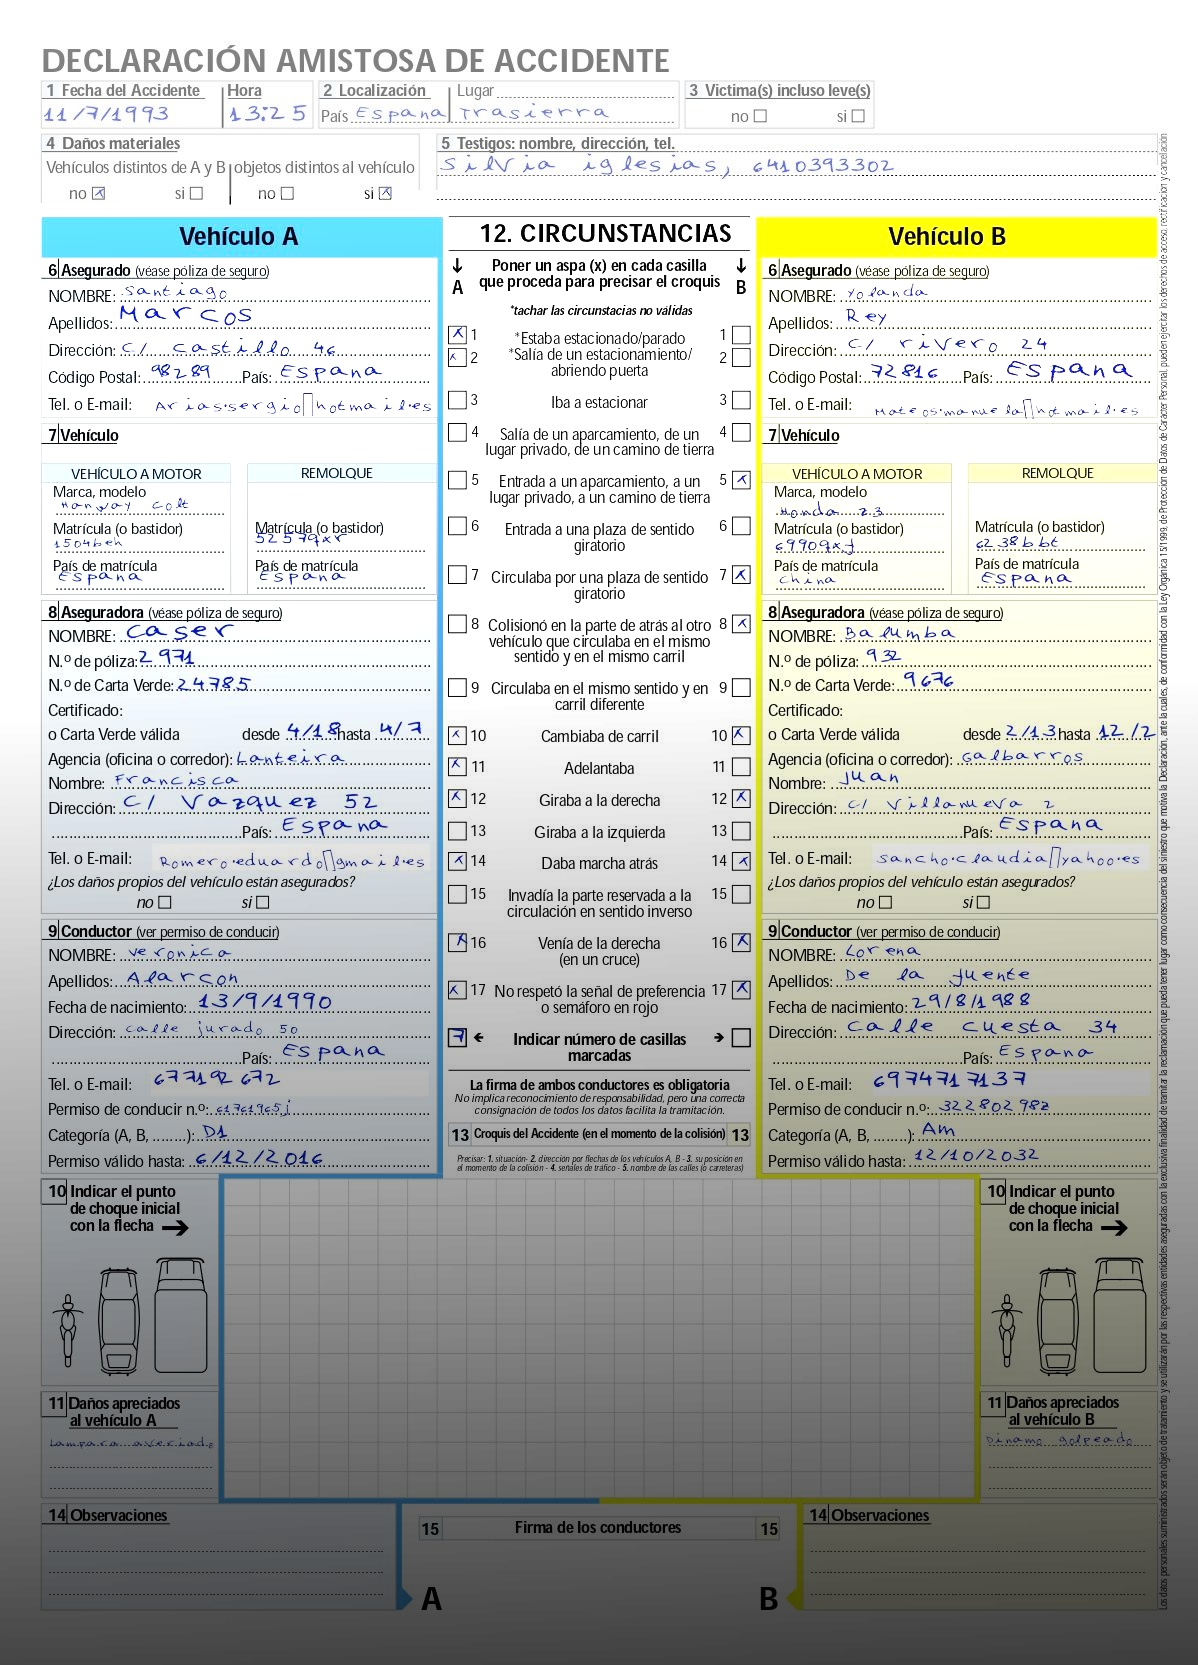 DECLARACIÓN AMISTOSA DE ACCIDENTE
1 Fecha del Accidente Hora 2 Localización Lugar 3 Victima(s) incluso leve(s)
11/7/1993 13:25 País Espana Trasierra no si
4 Daños materiales 5 Testigos: nombre, dirección, tel.
Vehículos distintos de A y B objetos distintos al vehículo Silvia iglesias, 6410393302
no x si no si x
Vehículo A 12. CIRCUNSTANCIAS Vehículo B
A Poner un aspa (x) en cada casilla B
que proceda para precisar el croquis
*tachar las circunstacias no válidas
6 Asegurado (véase póliza de seguro)
NOMBRE: Santiago
Apellidos: Marcos
Dirección: C/ castillo 46
Código Postal: 98289 País: Espana
Tel. o E-mail: Arias.sergio hotmail.es
7 Vehículo
VEHÍCULO A MOTOR REMOLQUE
Marca, modelo
Hanway colt
Matrícula (o bastidor) Matrícula (o bastidor)
1504beh 52579qxr
País de matrícula País de matrícula
Espana Espana
8 Aseguradora (véase póliza de seguro)
NOMBRE: caser
N.º de póliza: 2971
N.º de Carta Verde: 24785
Certificado:
o Carta Verde válida desde 4/18 hasta 4/7
Agencia (oficina o corredor): Lanteira
Nombre: Francisca
Dirección: C/ Vazquez 52
País: Espana
Tel. o E-mail: Romero.eduardo gmail.es
¿Los daños propios del vehículo están asegurados?
no si
9 Conductor (ver permiso de conducir)
NOMBRE: veronica
Apellidos: Alarcon
Fecha de nacimiento: 13/9/1990
Dirección: calle jurado 50
País: Espana
Tel. o E-mail: 677192672
Permiso de conducir n.º: 61761965j
Categoría (A, B, ........): D1
Permiso válido hasta: 6/12/2016
x 1 *Estaba estacionado/parado 1
x 2 *Salía de un estacionamiento/ 2
abriendo puerta
3 Iba a estacionar 3
4 Salía de un aparcamiento, de un 4
lugar privado, de un camino de tierra
5 Entrada a un aparcamiento, a un 5 x
lugar privado, a un camino de tierra
6 Entrada a una plaza de sentido 6
giratorio
7 Circulaba por una plaza de sentido 7 x
giratorio
8 Colisionó en la parte de atrás al otro 8 x
vehículo que circulaba en el mismo
sentido y en el mismo carril
9 Circulaba en el mismo sentido y en 9
carril diferente
x 10 Cambiaba de carril 10 x
x 11 Adelantaba 11
x 12 Giraba a la derecha 12 x
13 Giraba a la izquierda 13
x 14 Daba marcha atrás 14 x
15 Invadía la parte reservada a la 15
circulación en sentido inverso
x 16 Venía de la derecha 16 x
(en un cruce)
x 17 No respetó la señal de preferencia 17 x
o semáforo en rojo
7 ← Indicar número de casillas →
marcadas
La firma de ambos conductores es obligatoria
No implica reconocimiento de responsabilidad, pero una correcta
consignación de todos los datos facilita la tramitación.
13 Croquis del Accidente (en el momento de la colisión) 13
Precisar: 1. situación- 2. dirección por flechas de los vehículos A, B - 3. su posición en
el momento de la colisión - 4. señales de tráfico - 5. nombre de las calles (o carreteras)
6 Asegurado (véase póliza de seguro)
NOMBRE: Yolanda
Apellidos: Rey
Dirección: C/ rivero 24
Código Postal: 72816 País: Espana
Tel. o E-mail: Mateos.manuela hotmail.es
7 Vehículo
VEHÍCULO A MOTOR REMOLQUE
Marca, modelo
Honda z3
Matrícula (o bastidor) Matrícula (o bastidor)
6990qxf 6238bbt
País de matrícula País de matrícula
China Espana
8 Aseguradora (véase póliza de seguro)
NOMBRE: Balumba
N.º de póliza: 932
N.º de Carta Verde: 9676
Certificado:
o Carta Verde válida desde 2/13 hasta 12/2
Agencia (oficina o corredor): Galbarros
Nombre: Juan
Dirección: C/ Villanueva 2
País: Espana
Tel. o E-mail: Sancho.claudia yahoo.es
¿Los daños propios del vehículo están asegurados?
no si
9 Conductor (ver permiso de conducir)
NOMBRE: Lorena
Apellidos: De la fuente
Fecha de nacimiento: 29/8/1988
Dirección: Calle Cuesta 34
País: Espana
Tel. o E-mail: 6974717137
Permiso de conducir n.º: 32280298z
Categoría (A, B, ........): Am
Permiso válido hasta: 12/10/2032
10 Indicar el punto
de choque inicial
con la flecha
11 Daños apreciados
al vehículo A
Lampara averiado
10 Indicar el punto
de choque inicial
con la flecha
11 Daños apreciados
al vehículo B
Dinamo golpeado
14 Observaciones 15 Firma de los conductores 15 14 Observaciones
A B
Los datos personales suministrados serán objeto de tratamiento y se utilizarán por las respectivas entidades aseguradas con la exclusiva finalidad de tramitar la reclamación que pueda tener lugar como consecuencia del siniestro que motiva la Declaración, ante la cuales, de conformidad con la Ley Orgánica 15/1999 de Protección de Datos de Carácter Personal, pueden ejercitar los derechos de acceso, rectificación y cancelación